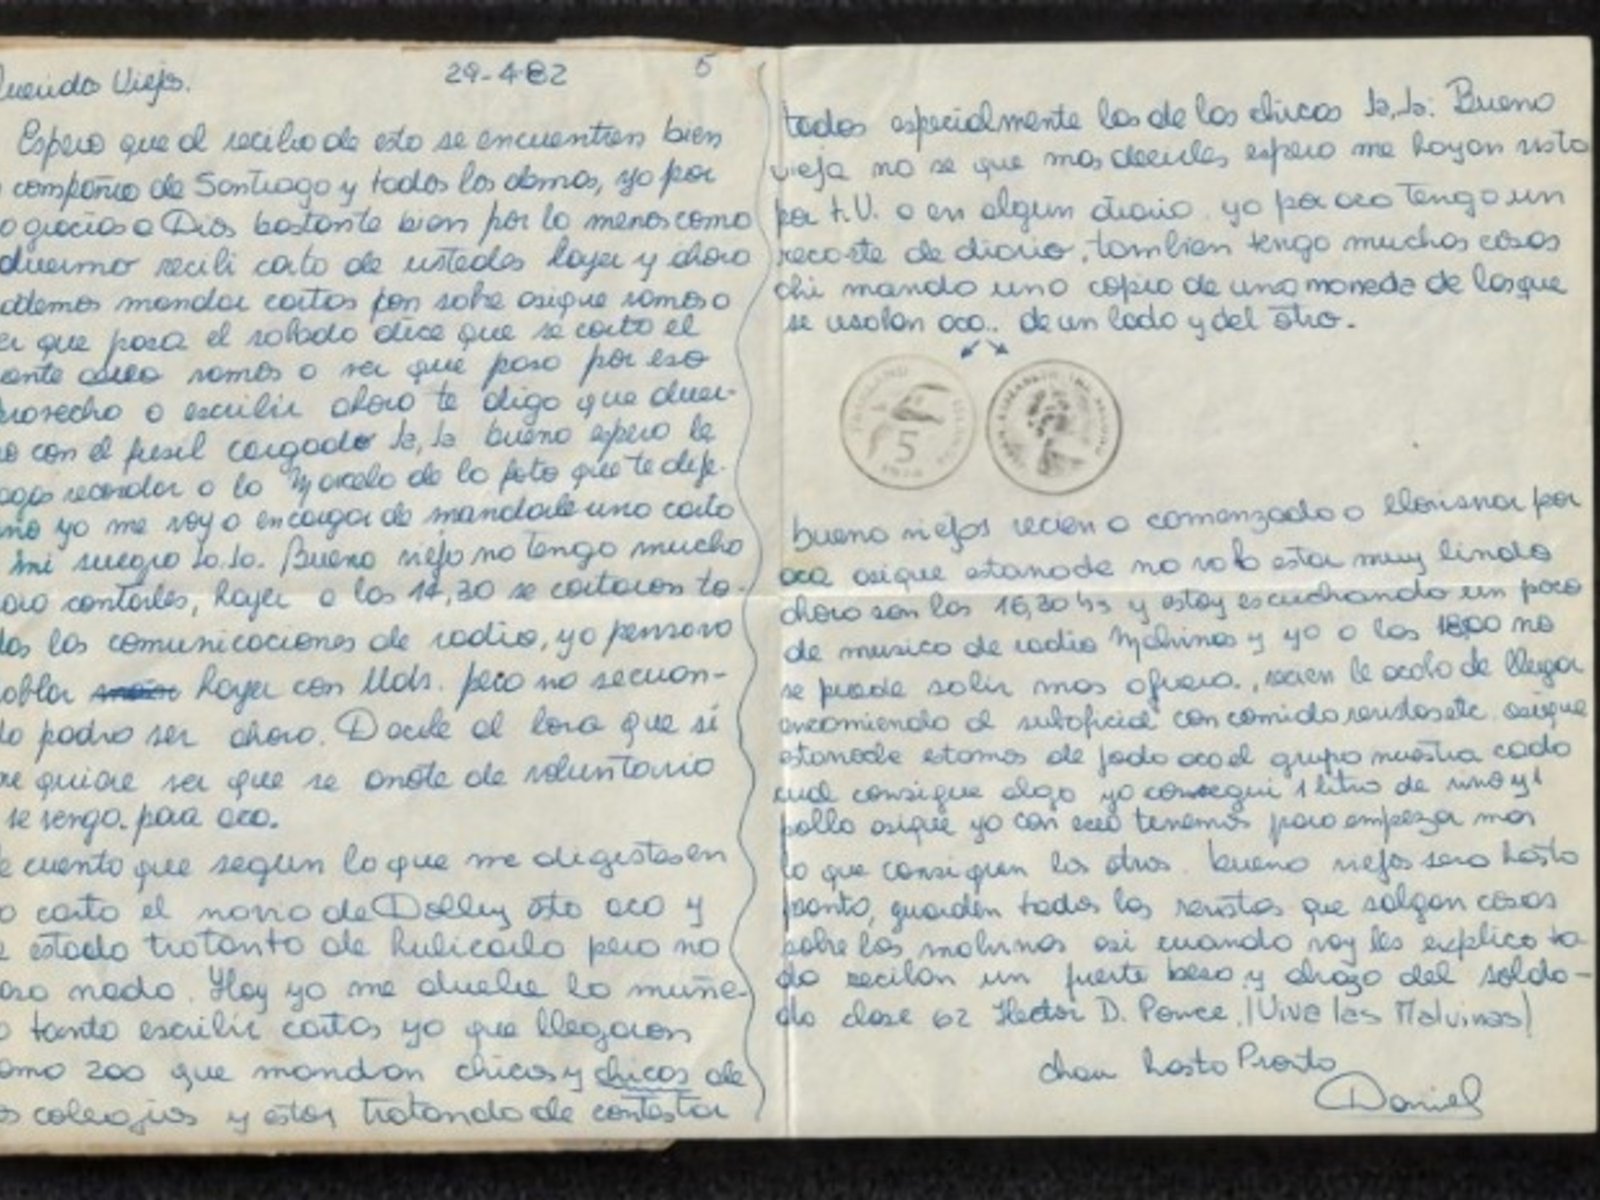 Queridos Viejos. 29-4-82 5
Espero que al recibo de esto se encuentren bien
compañia de Santiago y todos los demas, yo por
o gracias a Dios bastante bien por lo menos como
duermo recibi carta de ustedes hayer y ahora
odemos mandar cartas con sobre asique vamos a
er que pasa el sabado dice que se corto el
vamos a ver que paso por eso
provecho a escribir ahora te digo que duer-
o con el fusil cargado Ja, Ja bueno espero le
agas recordar a la Marcela de la foto que te deje.
eno yo me voy a encargar de mandarle una carta
mi suegro Ja. Ja. Bueno viejo no tengo mucho
ara contarles, hayer a las 14,30 se cortaron to-
das las comunicaciones de radio, yo pensava
ablar hayer con Uds. pero no se cuan-
do podra ser ahora. Decile al lora que si
me quiere ver que se anote de voluntario
se venga. para aca.
e cuento que segun lo que me digistes en
a carta el novio de Dolly sta aca y
e estado tratanto de hubicarlo pero no
aso nada. Hoy yo me duele la muñe-
a tanto escribir cartas ya que llegaron
omo 200 que mandan chicas y chicos de
os colegios y estar tratando de contestar
todas especialmente las de las chicas Ja, Ja. Bueno
vieja no se que mas decirles espero me hayan visto
por t.V. o en algun diario. yo por aca tengo un
recorte de diario, tambien tengo muchas cosas
ahi mando una copia de una moneda de las que
se usaban aca.. de un lado y del otro.
5
bueno viejos recien a comenzado a lloviznar por
aca asique esta noche no va a estar muy linda
ahora son las 16,30 hs y estoy escuchando un poco
de musica de radio Malvinas y yo a las 18,00 no
se puede salir mas afuera., recien le acaba de llegar
encomienda al suboficial con comida
estanoche estamos de joda aca el grupo nuestra cada
cual consigue algo yo consegui 1 litro de vino y 1
pollo asique ya con eso tenemos para empezar mas
lo que consiguen los otros. bueno viejos sera hasta
pronto, guarden todas las revistas que salgan cosas
sobre las malvinas asi cuando voy les explico to-
do reciban un fuerte beso y abrazo del solda-
do clase 62 Hector D. Ponce. ¡Viva las Malvinas!
chau hasta Pronto
Daniel